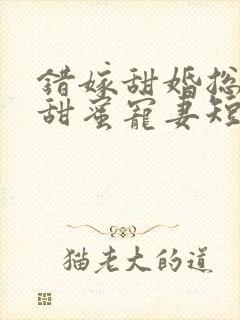 错嫁甜婚总
甜蜜宠妻短
猫老大的道